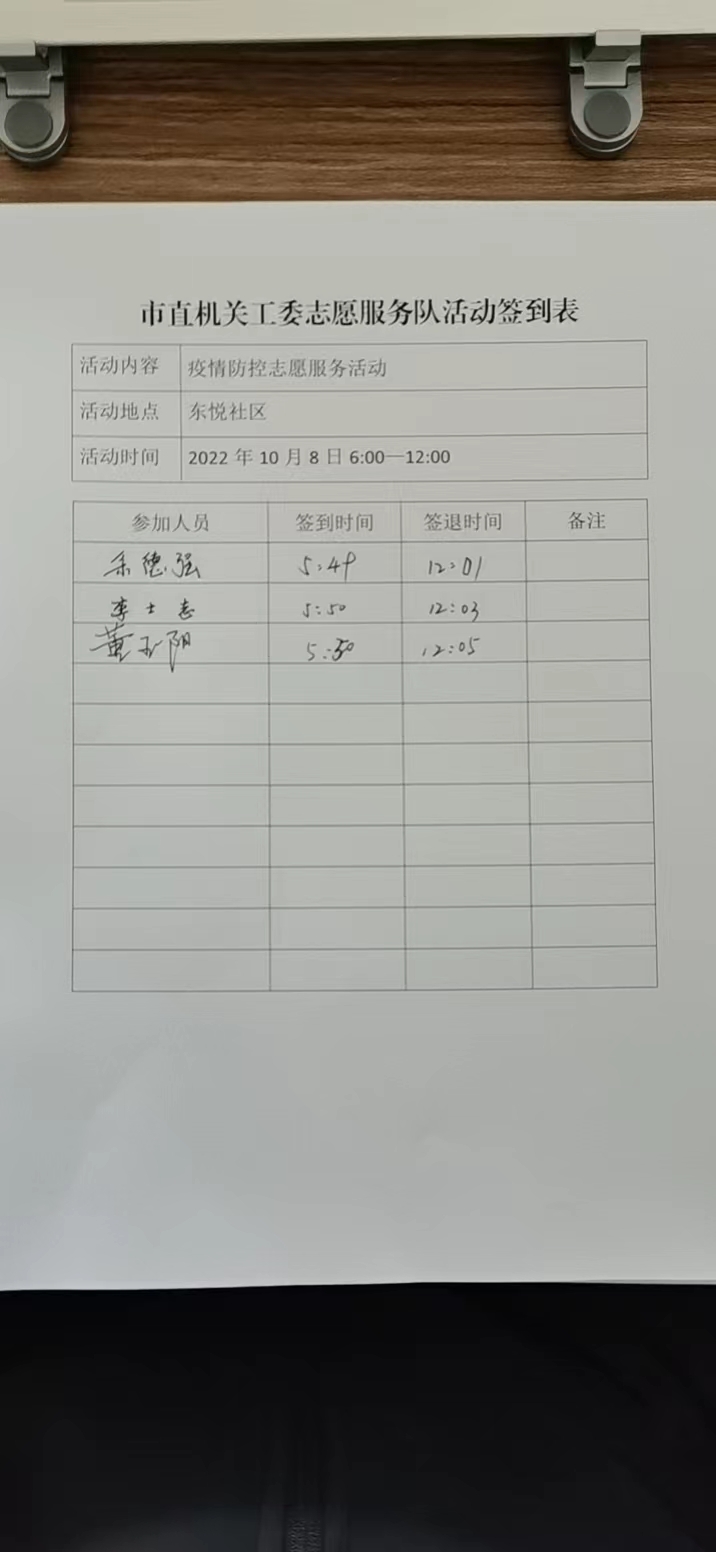 市直机关工委志愿服务队活动签到表
活动内容 疫情防控志愿服务活动
活动地点 东悦社区
活动时间 2022 年 10 月 8 日 6:00—12:00
参加人员 签到时间 签退时间 备注
德强 5:49 12:01
李士志 5:50 12:03
董玉阳 5:50 12:05